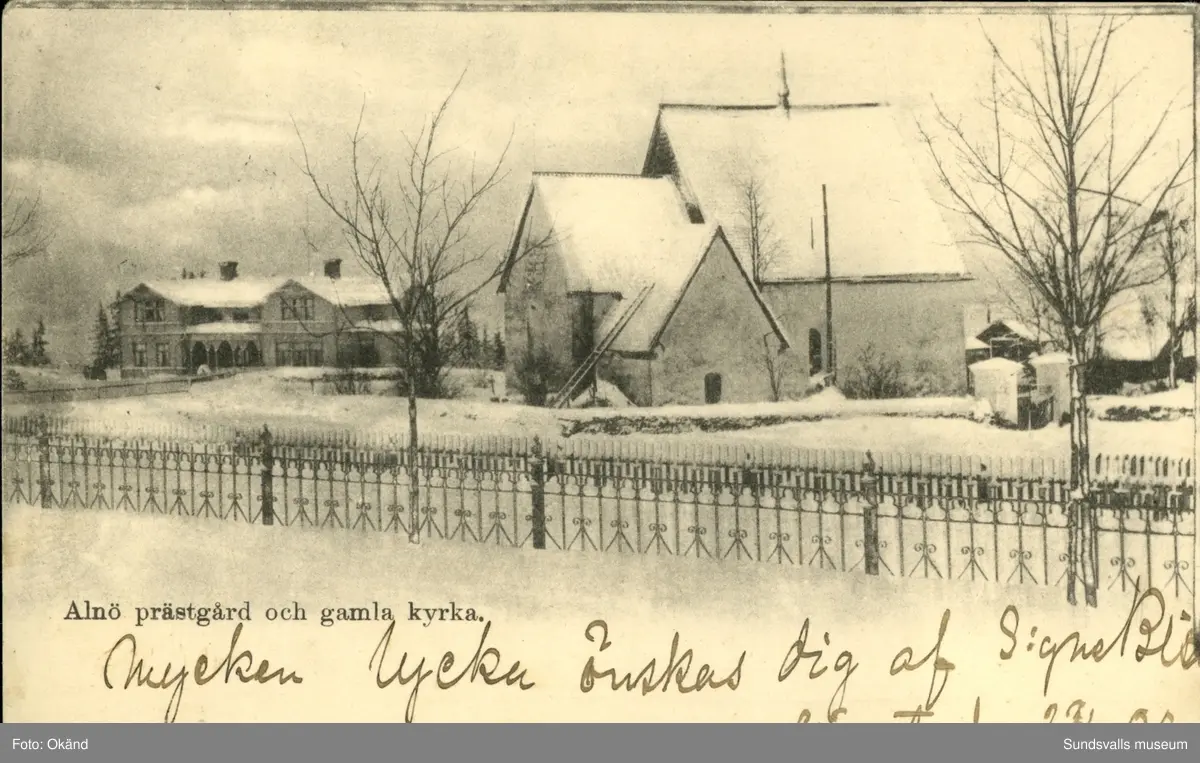 Alnö prästgård och gamla kyrka.
Mycken lycka önskas dig af Signe
Foto: Okänd
Sundsvalls museum